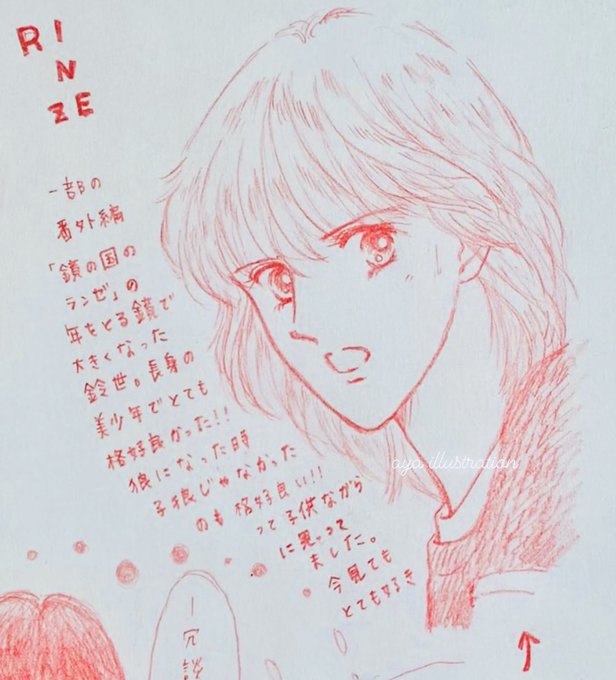 RINZE
一部の
番外編
「鏡の国の
ランゼ」の
年をとる鏡で
大きくなった
鈴世。長身の
美少年でとても
格好良かった!!
狼になった時
子狼じゃなかった
のも格好良い!!
って子供ながら
に思って
ました。
今見ても
とても好き
aya illustration
ー冗談